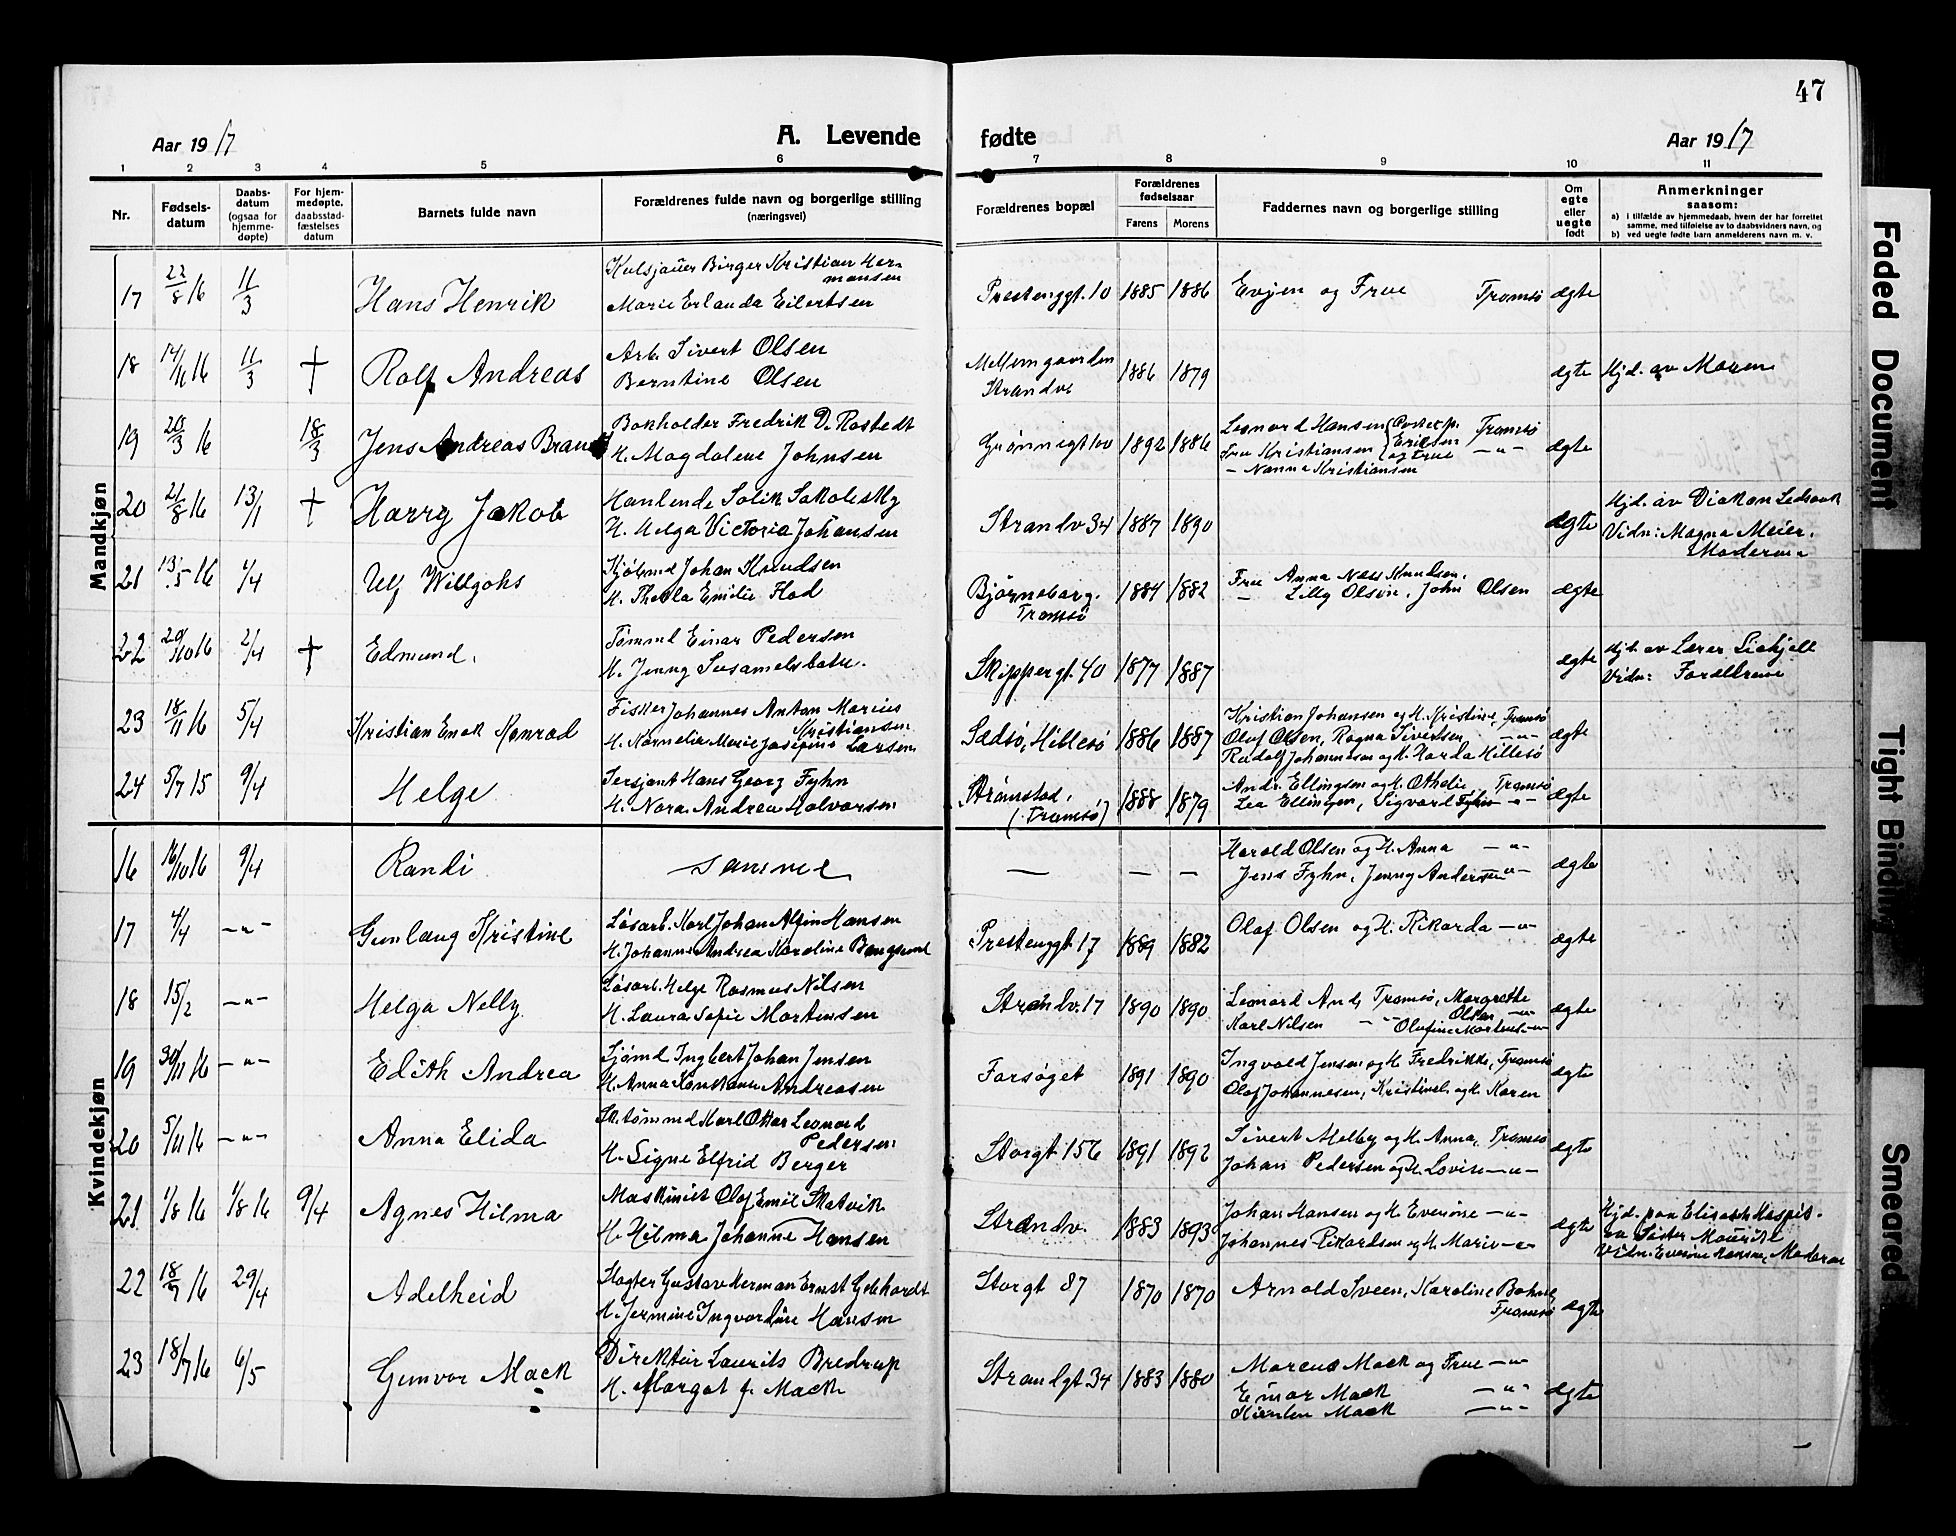 47
Aar 1917 A. Levende fødte Aar 1917
1 2 3 4 5 6 7 8 9 10 11
Nr. Fødsels-datum Daabs-datum (ogsaa for hjemme-døpte) For hjem-medøpte. daabsstad-fæstelses datum Barnets fulde navn Forældrenes fulde navn og borgerlige stilling (næringsvei) Forældrenes bopæl Forældrenes fødselsaar Farens Morens Faddernes navn og borgerlige stilling Om egte eller uegte født Anmerkninger saasom:
a) i tilfælde av hjemmedaab, hvem der har forrettet samme, med tilføielse av to daabsvidners navn, og
b) ved uegte fødte barn anmelderens navn m. v.
Mandkjøn
17 22/8 16 11/3 Hans Henrik Kulsjauer Birger Kristian Hermansen
Marie Erlanda Eilertsen Prestenggt. 10 1885 1886 Evjen og Frue Tromsø ægte
18 14/11 16 11/3 † Rolf Andreas Arb. Sivert Olsen
Berntine Olsen Mellemgaarden Strandv. 1886 1879 ægte Hjd. av Moren
19 20/3 16 18/3 Jens Andreas Brandt Bokholder Fredrik D. Rostedt
H. Magdalene Johnsen Grønnegt 100 1892 1886 Leonard Hansen Postexp. Tromsø
Fru Kristiansen Eriksen og Frue — " —
— Nanna Kristiansen ægte
20 21/8 16 13/1 † Harry Jakob Hanlende Solik Sakolesky
H. Helga Victoria Johansen Strandv 34 1887 1890 ægte Hjd. av Diakon
Vidn: Magna Meier.
Moderen
21 13/5 16 1/4 Ulf Willgohs Kjøbmd Johan Knudsen
H. Thekla Emilie Flod Bjørneborg. Tromsø 1884 1882 Frue Anna Næss Knudsen.
— Lilly Olsen, John Olsen ægte
22 20/10 16 2/4 † Edmund. Tømmd Einar Pedersen
H. Jenny Skippergt. 40 1877 1887 ægte Hjd. av Lærer
Vidn: Forældrene
23 18/11 16 5/4 Kristian Enok Konrad Fisker Johannes Anton Marius Kristiansen
H. Kornelia Marie Josefine Larsen Sædsø, Hillesø 1886 1887 Kristian Johansen og H. Kristine, Tromsø
Olaf Olsen, Ragna Sivertsen — " —
Rudolf Johannesen og H. Harda Hillesø ægte
24 5/7 15 9/4 Helge Sersjant Hans Georg Fyhn
H. Nora Andrea Halvorsen Strømstad, (Tromsø) 1888 1879 Andr. Ellingsen og H. Othelie Tromsø
Lea Ellingsen, Sigvard Fyhn — " — ægte
Kvindekjøn
16 16/10 16 9/4 Randi samme — — — Harald Olsen og H. Anna — " —
Jens Fyhn, Jenny Andersen — " — ægte
17 4/4 — " — Gunlaug Kristine Løsarb. Karl Johan Alfin Hansen
H. Johanne Andrea Karoline Bangsund Prestenggt 17 1889 1882 Olaf Olsen og H. Rikarda — " — ægte
18 15/2 — " — Helga Nelly Løsarb. Helge Rasmus Nilsen
H. Laura Sofie Mortensen Strandv. 17 1890 1890 Leonard And. Tromsø, Margrethe Olsen — " —
Karl Nilsen — " — Olufine Mortens. — " — ægte
19 30/11 16 — " — Edith Andrea Sjømd Ingbert Johan Jensen
H. Anna Konstanse Andreasen Forsøget 1891 1890 Ingvald Jensen og H. Fredrikke, Tromsø
Olaf Johannesen, Kristinel. og H. Karen ægte
20 5/11 16 — " — Anna Elida Sk.tømmd Karl Ottar Leonard Pedersen
H. Signe Elfrid Berger Storgt 156 1891 1892 Sivert Melby og H. Anna, Tromsø
Johan Pedersen og H. Lovise — " — ægte
21 1/8 16 1/8 16 9/4 Agnes Hilma Maskinist Olaf Emil Skatvik
H. Hilma Johanne Hansen Strandv. 1883 1893 Johan Hansen og H. Everine — " —
Johannes Rikardsen og H. Marie — " — ægte Hjd. paa Elisabeth Hospit.
av Søster
Vidn: Everine Hansen, Moderen
22 18/7 16 29/4 Adelheid Slagter Gustav Herman Ernst Gebhardt
H. Jermine Ingvardine Hansen Storgt 87 1870 1870 Arnold Sveen, Karoline
Tromsø ægte
23 18/7 16 6/5 Gunvor Mack Direktør Laurits Bredrup
H. Margot f. Mack Strandgt 34 1883 1880 Marcus Mack og Frue — " —
Einar Mack — " —
Mack — " — ægte
Faded Document
Tight Binding
Smeared